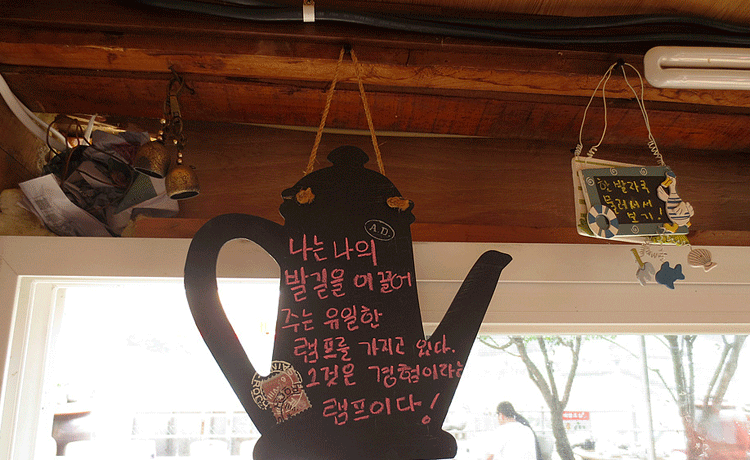 A.D.
나는 나의
발길을 이끌어
주는 유일한
램프를 가지고 있다.
그것은 경험이라는
램프이다!
한 발자국
물러서서
보기!